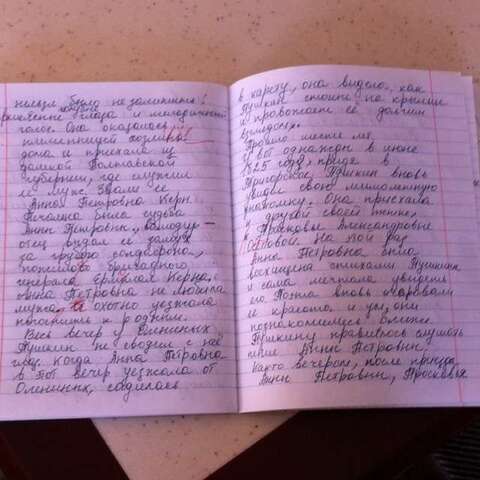 нельзя было не заметить!
оживление
глаза и мелодичный
голос. Она оказалась
племянницей хозяина
дома и приехала из
далекой Полтавской
губернии, где служил
её муж. Звали её
Анна Петровна Керн.
Печальна была судьба
Анны Петровны.
отец выдал её замуж
за грубого солдафона,
пожилого бригадного
генерала Ермолая Керна.
Анна Петровна не любила
мужа, и охотно уезжала
погостить к родным.
Весь вечер у Олениных
Пушкин не сводил с неё
глаз. Когда Анна Петровна
в тот вечер уезжала от
Олениных, садилась
в карету, она видела, как
Пушкин стоит на крыльце
и провожает её долгим
взглядом.
Прошло шесть лет.
И вот однажды в июне
1825 года, придя в
Тригорское, Пушкин вновь
увидел свою мимолетную
знакомку. Она приехала
к своей тетке,
Прасковье Александровне
Осиповой. На этот раз
Анна Петровна была
восхищена стихами Пушкина
и сама мечтала увидеть
его. Поэта вновь очаровали
её красота и ум, они
познакомились ближе.
Пушкину нравилось слушать
пение Анны Петровны.
Както вечером, после приезда
Анны Петровны, Просковья